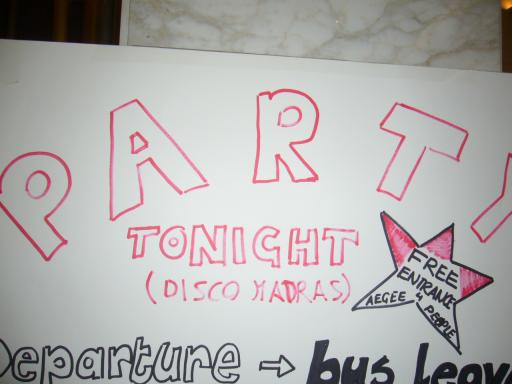 PARTY
TONIGHT
(DISCO MADRAS)
FREE
ENTRANCE
4
AEGEE PEOPLE
Departure → bus leav